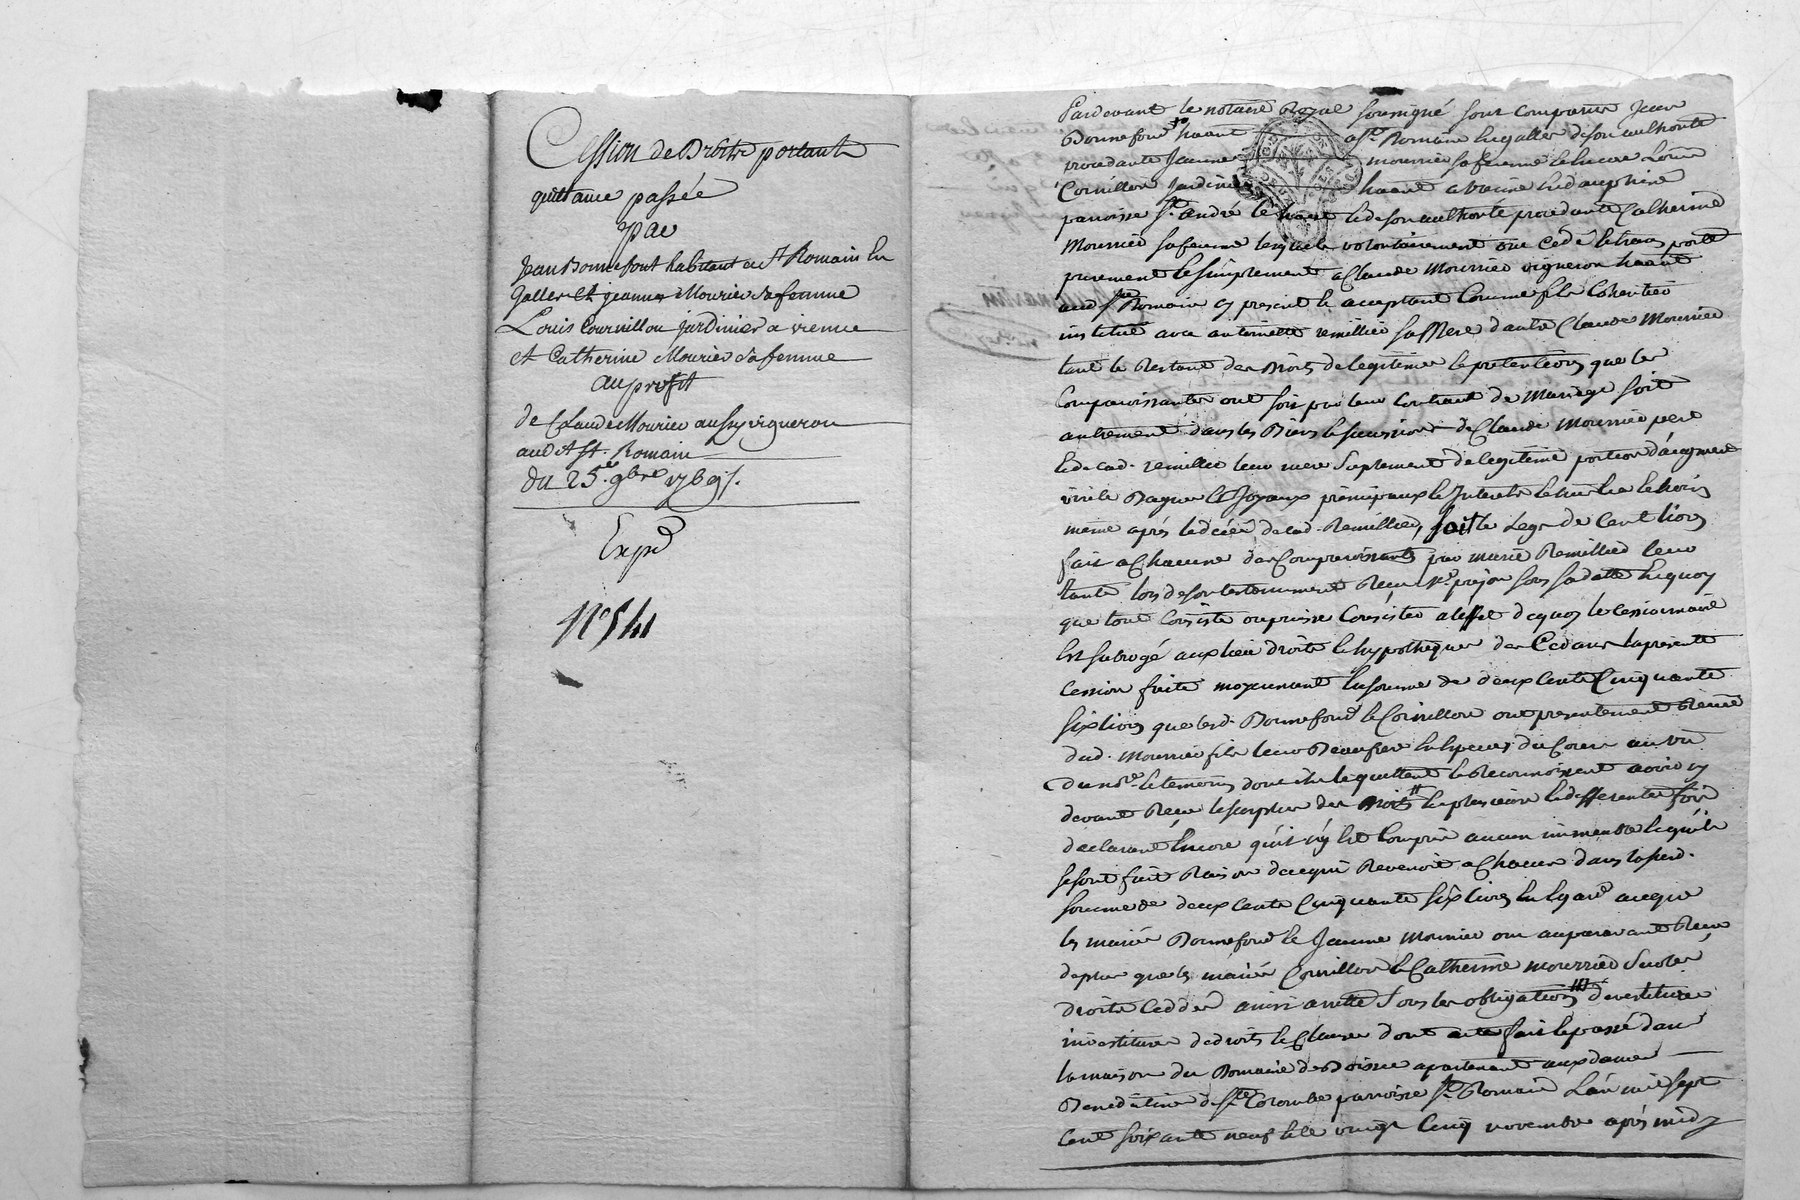 Cession de Droits portant
quittance passée
par
Jean Bonnefont habitant a St Romain en
Galles Et jeanne Mourier sa femme
Louis Cournillon jardinier a vienne
et Catherine Mourier sa femme
au profit
de Claude Mourier aussy vigneron
audit St. Romain
du 25e. 9bre 1769.
Expé
N° 541
Pardevant le notaire Royal soussigné sont comparus Jean
Bonnefond havant a St Romain en galles de son authorité
procedante Jeanne mourrier sa femme et encore Louis
Cornillon Jardinier havant a vienne en dauphiné
parroisse St. andré le haut et de son authorité procedante Catherine
Mourrier sa femme lesquels volontairement ont cedé et transporté
purement et simplement a Claude Mourrier vigneron havant
aud St Romain cy present et acceptant comme fils Coheritier
institué avec antoinette remillier sa Mere d'autre Claude Mourrier
tant le Restant des Droits de legitime et pretentions que les
Comparoissantes ont soit par leur Contract de Mariage soit
autrement dans les Biens et succession de Claude Mourrier pere
et de lad. remillier leur mere suplement de legitime portion d'augment
virile Bagues et Joyaux principaux et Interets et
meme après le décès de lad. Remillier, soit le legs de Cent livres
fait a Chacune des Comparoissantes par marie Remillier leur
tante lors de son testament Reçu Me. prejon sous sa datte en quoy
que tout Consiste ou puisse Consister a l'effet de quoy le cessionnaire
Est subrogé aux lieu droits et hypotheques des Cedans la presente
Cession faite moyennant la somme de deux Cents Cinquante
six livres que lesd. Bonnefond et Cornillon ont presentement
dud. Mourrier fils leur Beaufrere en especes du Cours au vu
Du nre. et temoins dont ils le quittent et Reconnoissent avoir cy
devant Reçu le surplus des Droits en plusieurs et differentes fois
declarant Encore qu'il n'y Est Compris aucun immeuble et qu'ils
se sont fait Raison de ce qui Revenoit a Chacun dans la susd.
somme de deux Cents Cinquante six livres En Egard a ce que
les mariés Bonnefond et Jeanne Mourrier ont auparavant Reçu
de plus que les mariés Cornillon et Catherine mourrier sur les
droits Ceddés ainsi arretté sous les obligations devestitures
investitures de droits et Clauses dont acte fait et passé dans
la maison du Domaine de Boisse apartenant aux dames
Benedictines de Ste Colombe parroisse St. Romain L'an mil sept
Cent soixante neuf et le vingt Cinq novembre après midy